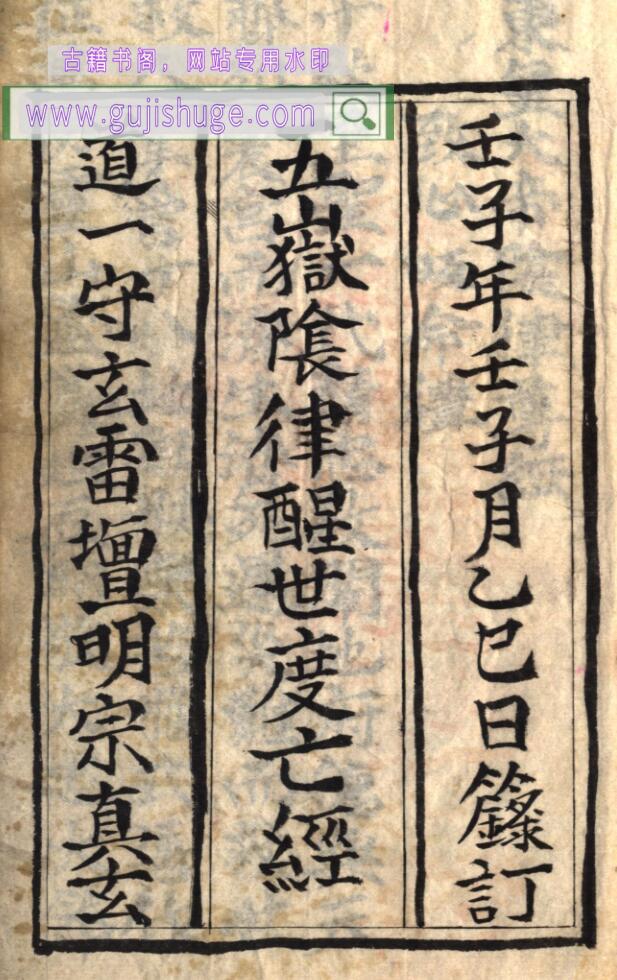 古籍书阁，网站专用水印
www.gujishuge.com
壬子年壬子月乙巳日籙訂
五嶽陰律醒世度亡經
道一守玄雷壇明宗真玄